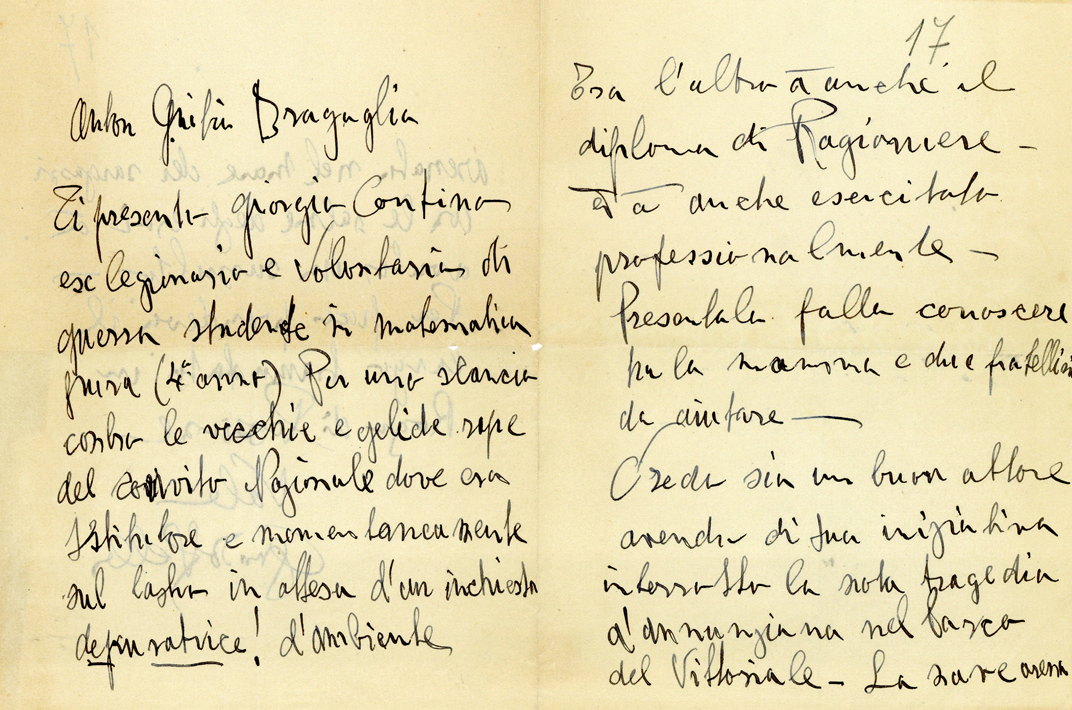 Anton Giulio Bragaglia
Ti presento Giorgio Contino
ex legionario e Volontario di
guerra studente in matematica
pura (4° anno) Per uno slancio
contro le vecchie e gelide rape
del convito Nazionale dove era
Istitutore e momentaneamente
sul lastro in attesa d'un inchiesta
depuratrice! d'ambiente
17
Tra l'altro à anche il
diploma di Ragioniere –
à anche esercitato
professionalmente –
Presentalo fallo conoscere
ha la mamma e due fratellini
da aiutare —
Credo sia un buon attore
avendo di sua iniziativa
interrotto la nota tragedia
d'annunziana nel parco
del Vittoriale – La nave